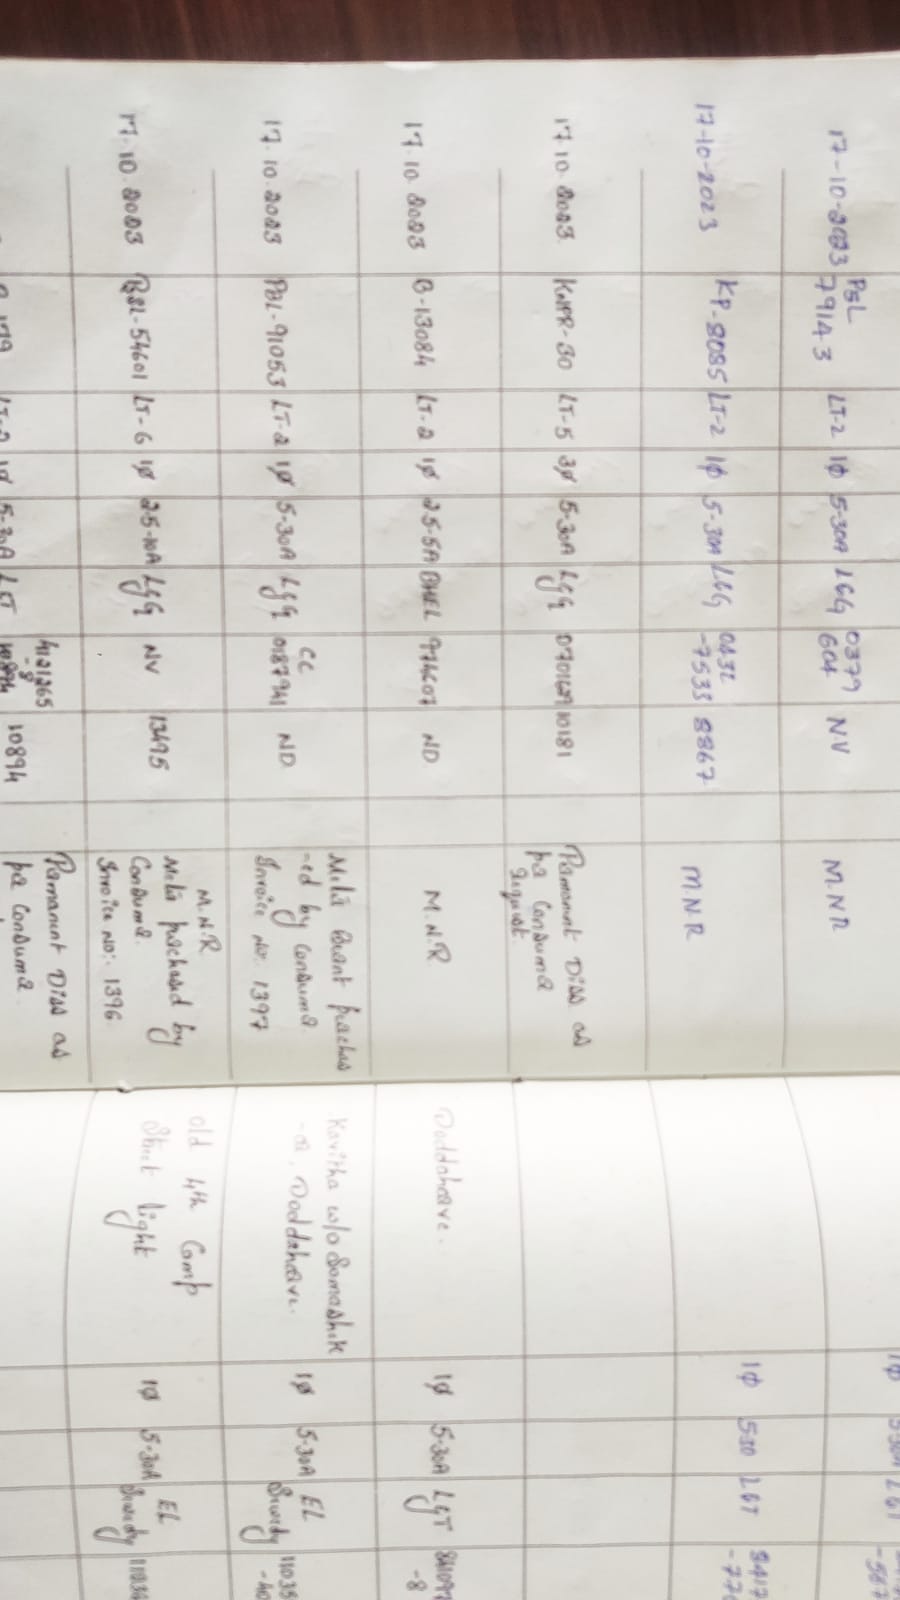 17-10-2023 PBL 79143 LT-2 1Φ 5-30A L&G 0379 604 N.V M.N.R
17-10-2023 KP-8085 LT-2 1Φ 5-30A L&G 0432 -7533 8867 M.N.R 1Φ 5-30 L&T
17.10.2023 KNPR-30 LT-5 3Φ 5-30A L&G 10181 Pamanent Diss as
pa Consuma
request.
17.10.2023 B-13084 LT-2 1Φ 2.5-5A BHEL 974607 ND M.N.R Doddaharve. 1Φ 5-30A L&T
17.10.2023 PBL-91053 LT-2 1Φ 5-30A L&G CC 0187941 ND Meta Buant puachas
-ed by Consuma
Invoice No: 1397
Kavitha w/o Somashik
-aa. Doddaharve.
1Φ 5-30A EL
Sewedy
17.10.2023 PBL-54601 LT-6 1Φ 2.5-10A L&G NV 13495 M.N.R
Meta puachased by
Consuma.
Invoice No:- 1396
old 4th Camp
Street light
1Φ 5-30A EL
Sewedy
10894 Pamanent Diss as
pa Consuma